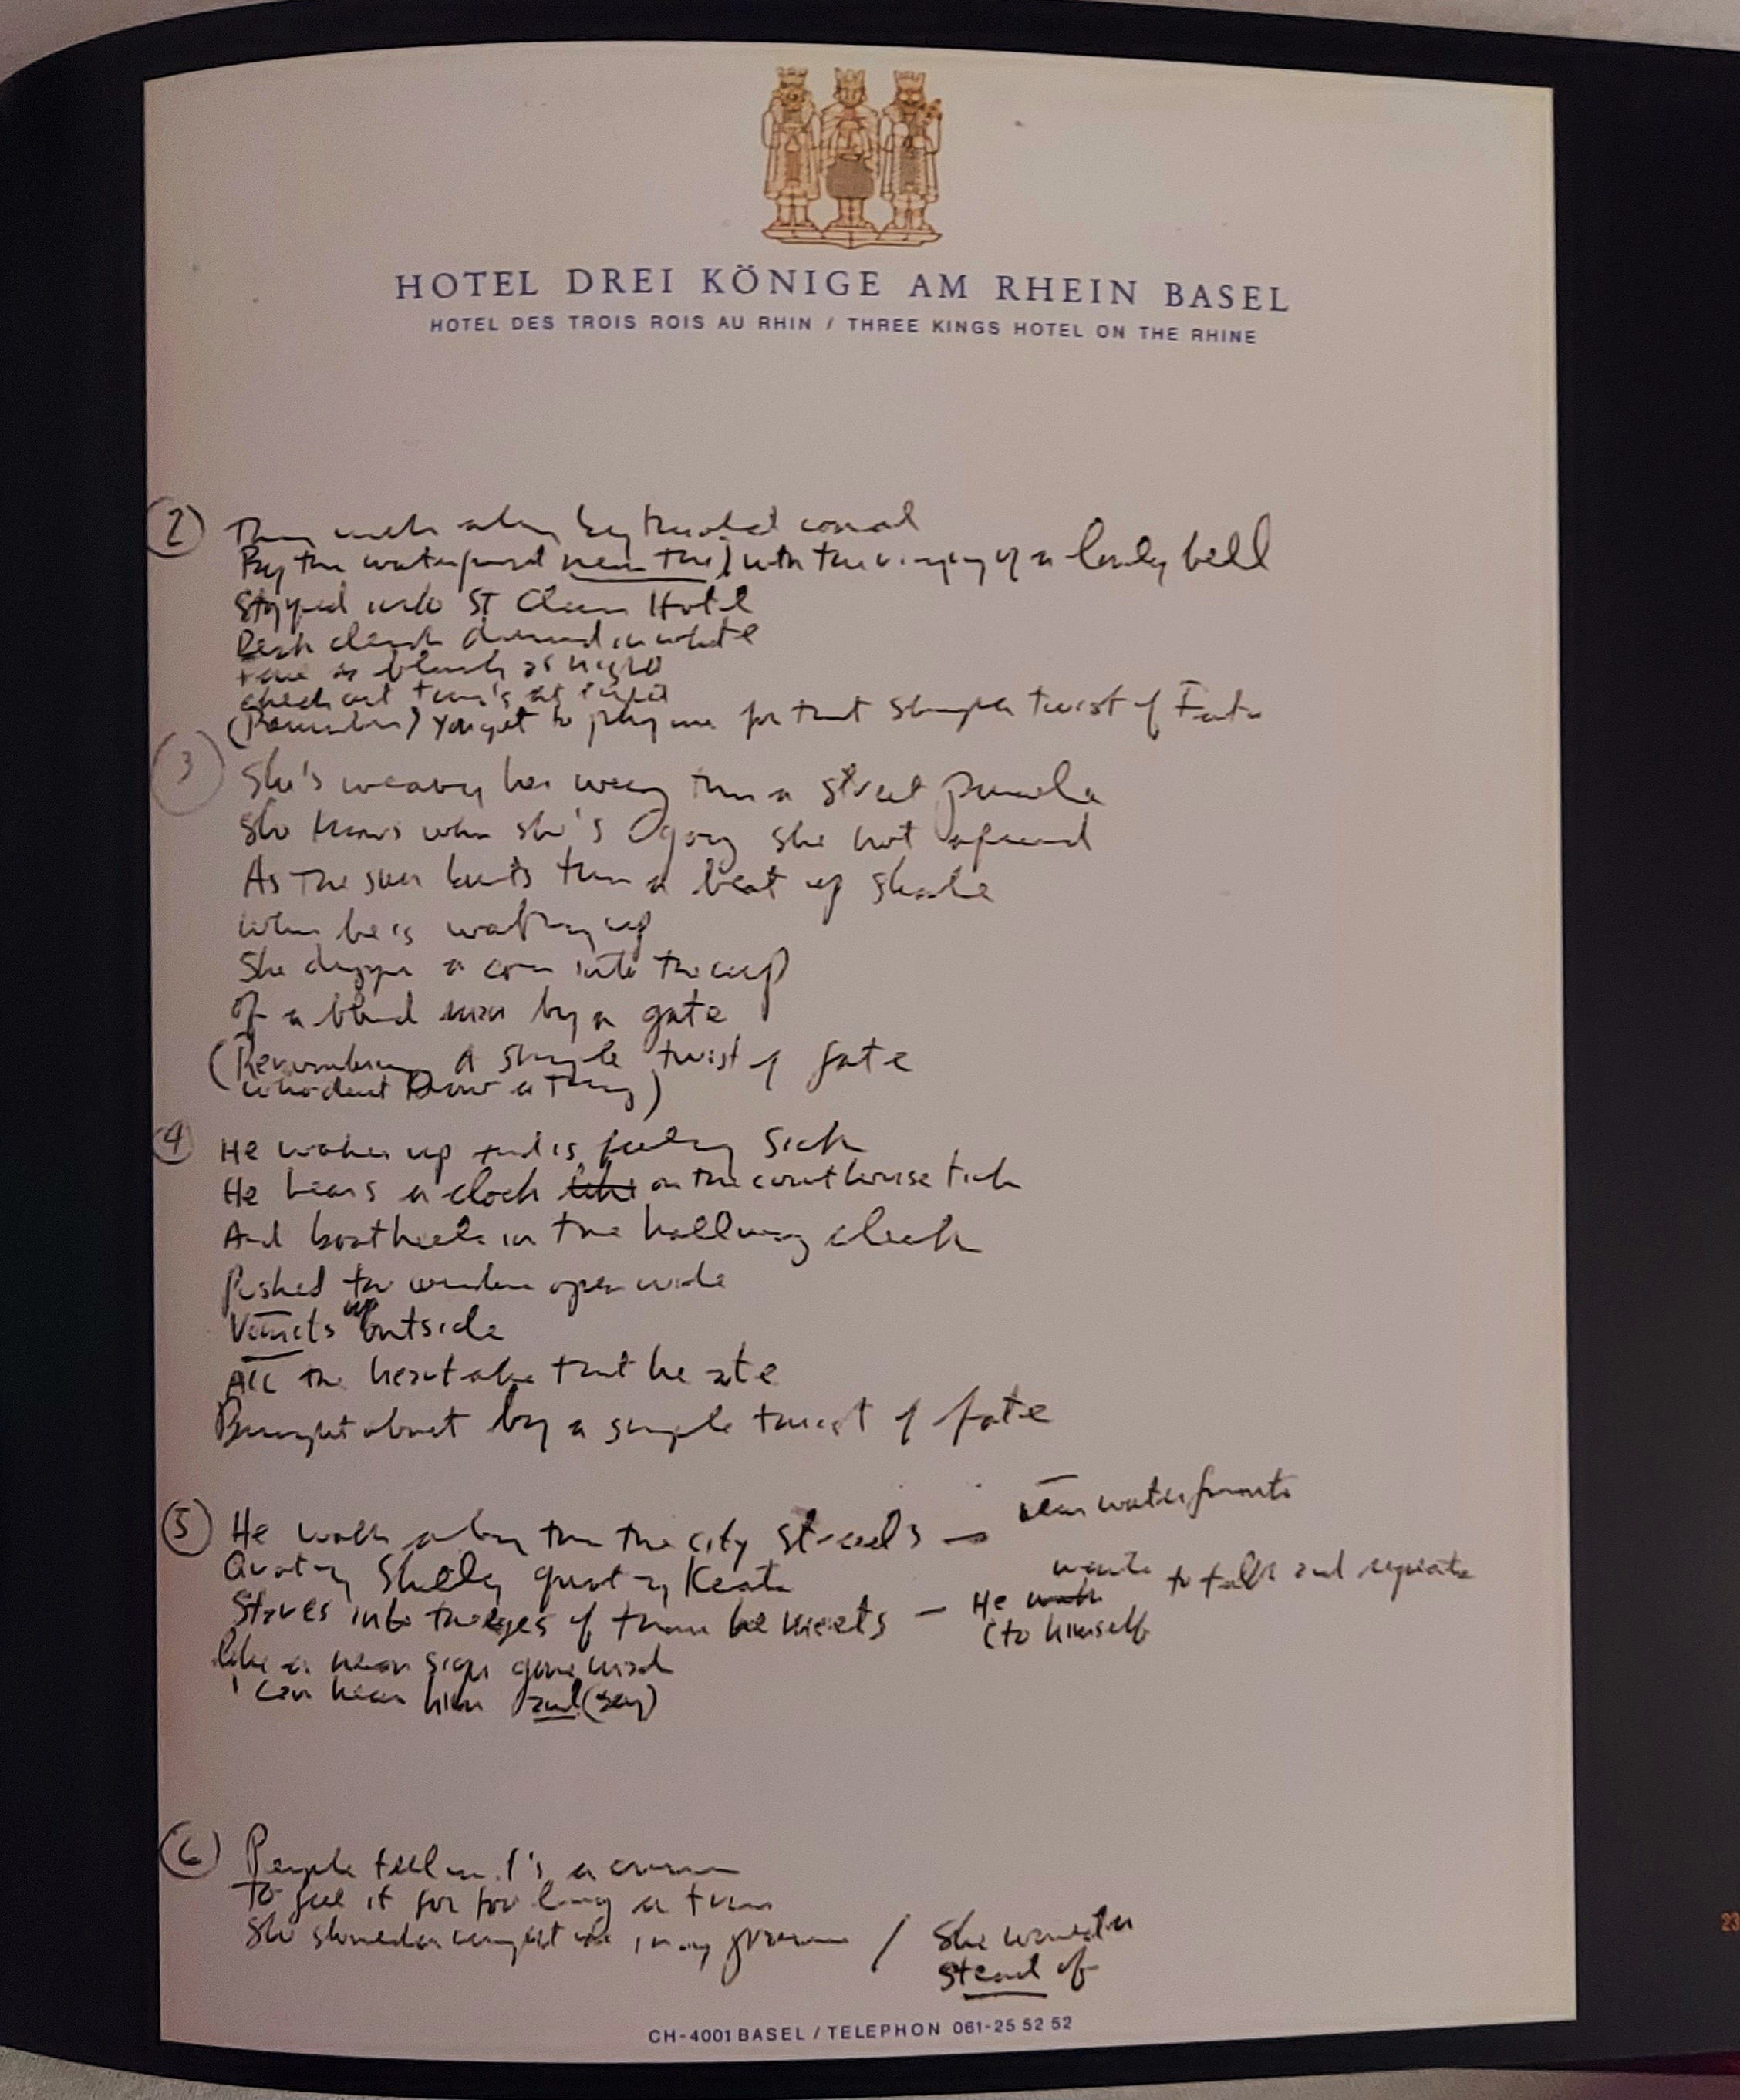 HOTEL DREI KÖNIGE AM RHEIN BASEL
HOTEL DES TROIS ROIS AU RHIN / THREE KINGS HOTEL ON THE RHINE
2 They walk along by the old canal
By the waterfront near the) with the ringing of a lonely bell
Stopped into St Hotel
Desk clerk dressed in white
face as black as night
check out time's at eight
(Remember) You got to pay me for that simple twist of Fate
3 She's weaving her way thru a street parade
She knows where she's going she not afraid
As the sun beats thru a beat up shade
When he is waking up
She drops a coin into the cup
Of a blind man by a gate
(Remembering A simple twist of fate
who don't know a thing)
4 He wakes up and is feeling sick
He hears a clock like on the courthouse tick
And boot heels in the hallway click
Pushed the window open wide
up outside
All the heartache that he ate
Brought about by a simple twist of fate
5 He walks along thru the city streets — waterfronts
Quoting Shelly quoting Keats
wants to talk and repeats
Stares into the eyes of those he meets — He
(to himself
like a neon sign gone mad
I can hear him and (say)
6 People tell me it's a crime
To feel it for too long a time
She should a caught me in my prime / She
stead of
CH-4001 BASEL / TELEPHON 061-25 52 52
23